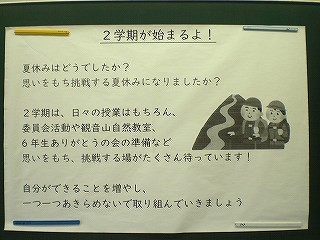 ２学期が始まるよ！
夏休みはどうでしたか？
思いをもち挑戦する夏休みになりましたか？
２学期は、日々の授業はもちろん、
委員会活動や観音山自然教室、
６年生ありがとうの会の準備など
思いをもち、挑戦する場がたくさん待っています！
自分ができることを増やし、
一つ一つあきらめないで取り組んでいきましょう